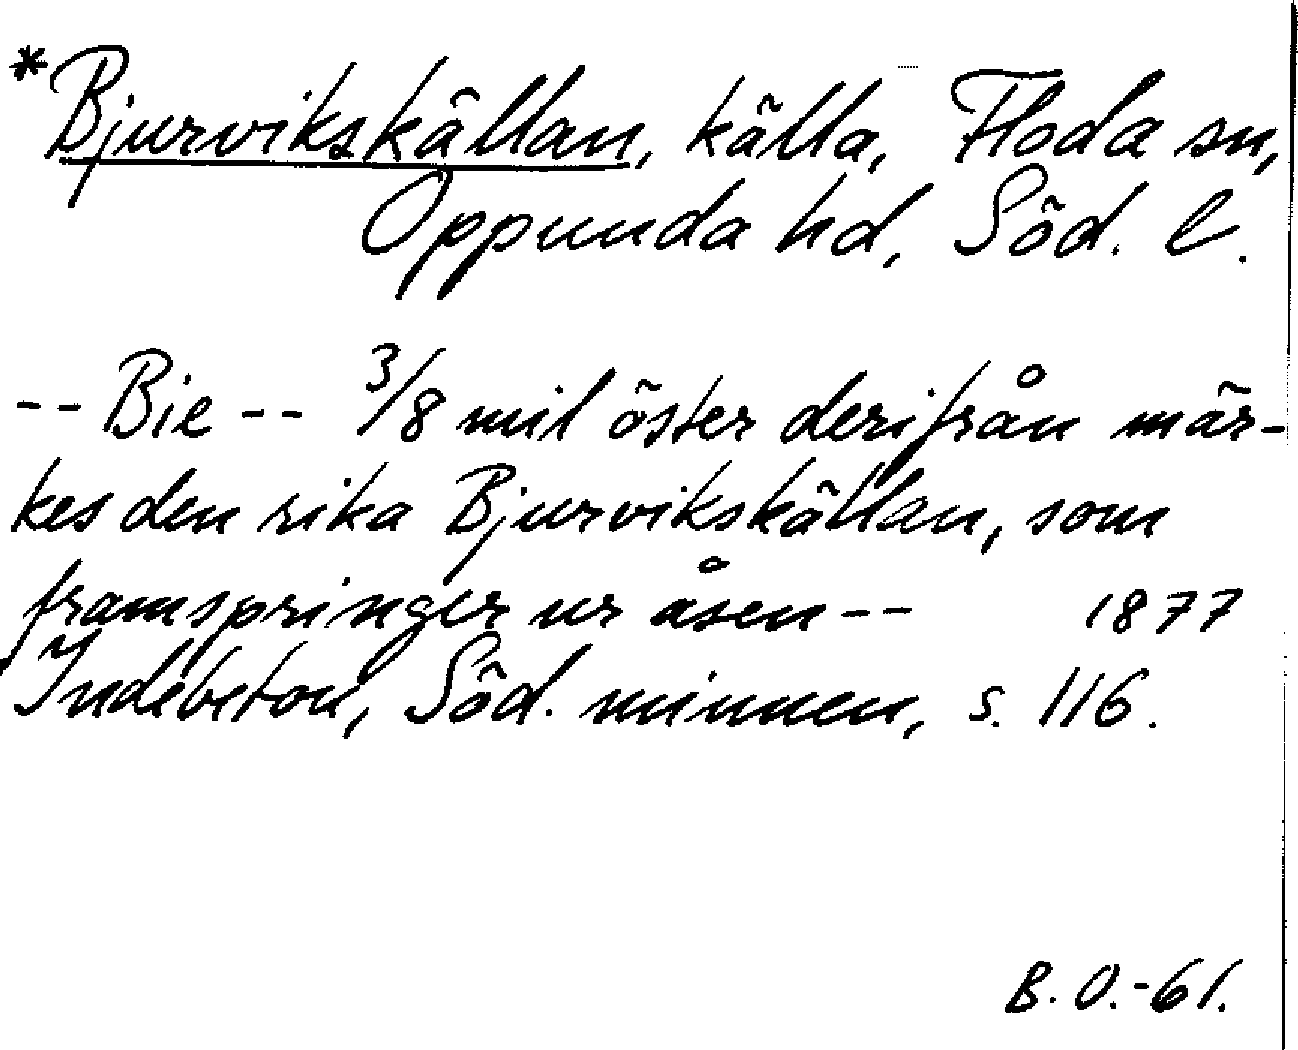 *Bjurvikskällan, källa, Floda sn,
Oppunda hd, Söd. l.
-- Bie -- 3/8 mil öster derifrån mär-
kes den rika Bjurvikskällan, som
framspringer ur åsen -- 1877
Indebetou, Söd. minnen, s. 116.
B. O.-61.